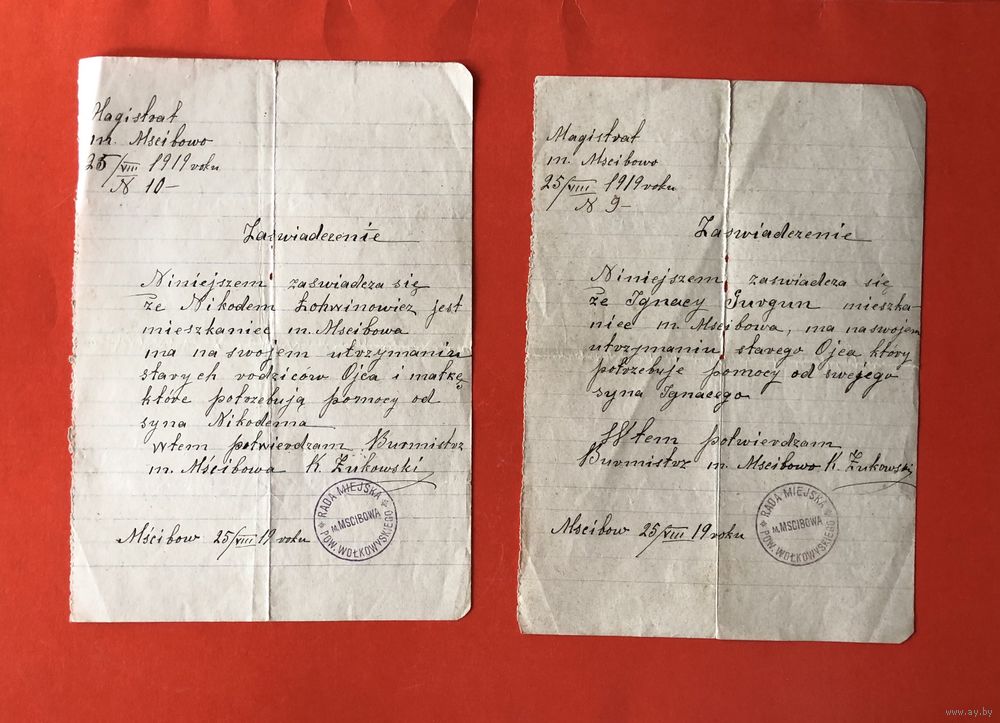 Magistrat
m. Mscibowo
25/VIII 1919 roku
N 10–
Zaswiadczenie
Niniejszem zaswiadcza się
że Nikodem Łohwinowicz jest
mieszkaniec m. Mscibowa
ma na swojem utrzymaniu
starych rodziców Ojca i matkę
które potrzebują pomocy od
syna Nikodema
wtem potwierdzam Burmistrz
m. Mścibowa K. Żukowski
RADA MIEJSKA
m. MSCIBOWA
POW. WOŁKOWYSKIEGO
Mścibow 25/VIII 19 roku
Magistrat
m. Mścibowo
25/VIII 1919 roku
N 9–
Zaswiadczenie
Niniejszem zaswiadcza się
że Ignacy Gurgun mieszka-
niec m. Mścibowa, ma na swojem
utrzymaniu starego Ojca który
potrzebuje pomocy od swejego
syna Ignacego
Wtem potwierdzam
Burmistrz m. Mscibowo K. Żukowski
RADA MIEJSKA
m. MSCIBOWA
POW. WOŁKOWYSKIEGO
Mścibow 25/VIII 19 roku
www.ay.by